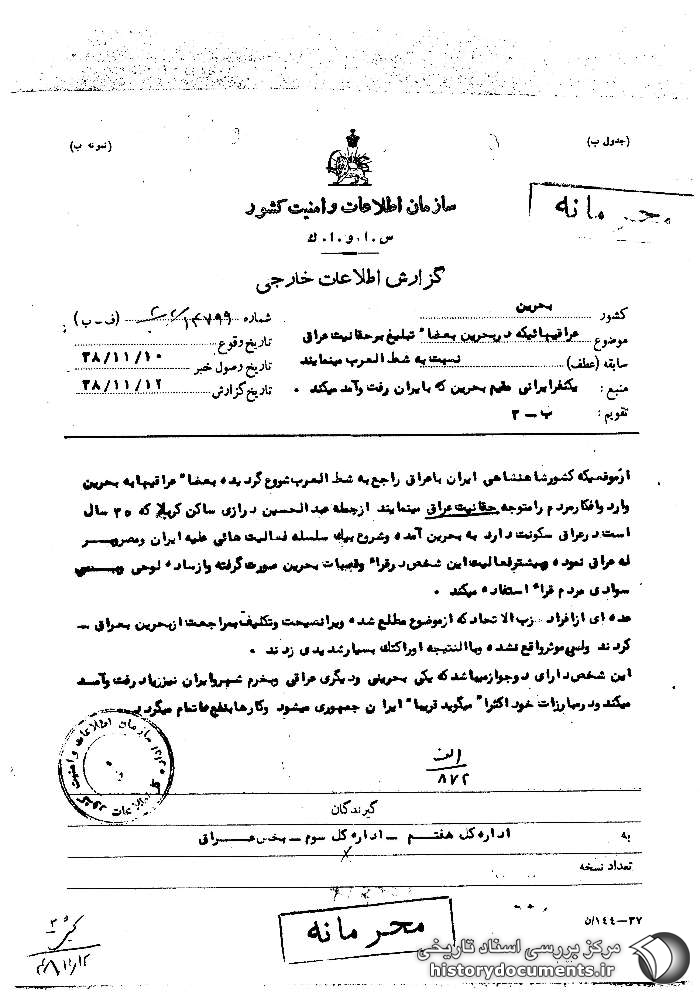 (جدول ب)
(نمونه ب)
سازمان اطلاعات و امنیت کشور
س.ا.و.ا.ك
محرمانه
گزارش اطلاعات خارجی
کشور بحرین
شماره ۱۳۷۹۹ (ف-ب)
موضوع عراقیهائیکه در بحرین بعضا" تبلیغ بر حقانیت عراق
تاریخ وقوع
سابقه (عطف) نسبت به شط العرب مینمایند
تاریخ وصول خبر ۳۸/۱۱/۱۰
منبع : یکنفر ایرانی مقیم بحرین که با ایران رفت وآمد میکند .
تاریخ گزارش ۳۸/۱۱/۱۲
تقویم : ب - ۳
ازموقعیکه کشور شاهنشاهی ایران باعراق راجع به شط العرب شروع گردیده بعضا" عراقیها به بحرین
وارد وافکار مردم را متوجه حقانیت عراق مینمایند ازجمله عبدالحسین درازی ساکن کربلا که ۳۵ سال
است در عراق سکونت دارد به بحرین آمده وشروع بیك سلسله فعالیت هائی علیه ایران ومصر بـــر
له عراق نموده وبیشتر فعالیت این شخص در قراء وقصبات بحرین صورت گرفته وازساده لوحی وبـــی
سوادی مردم قراء استفاده میکند .
عده ای ازافراد حزب الاتحاد که ازموضوع مطلع شده ویرا نصیحت وتکلیف بمراجعت ازبحرین بعراق -
کردند ولی موثر واقع نشده وبالنتیجه اوراکتك بسیار شدیدی زدند .
این شخص دارای دوجواز میباشد که یکی بحرینی ودیگری عراقی وبخرمشهر وایران نیز زیاد رفت وآمد
میکند ودر مبارزات خود اکثرا" میگوید قریبا" ایران جمهوری میشود وکارها بنفع ما تمام میگردد .
الف
۸۷۲
سازمان اطلاعات و امنیت کشور
گیرندگان
به اداره کل هفتم - اداره کل سوم - بخش عراق
تعداد نسخه
۳۷-۱۴۴/ن
محرمانه
مرکز بررسی اسناد تاریخی
historydocuments.ir